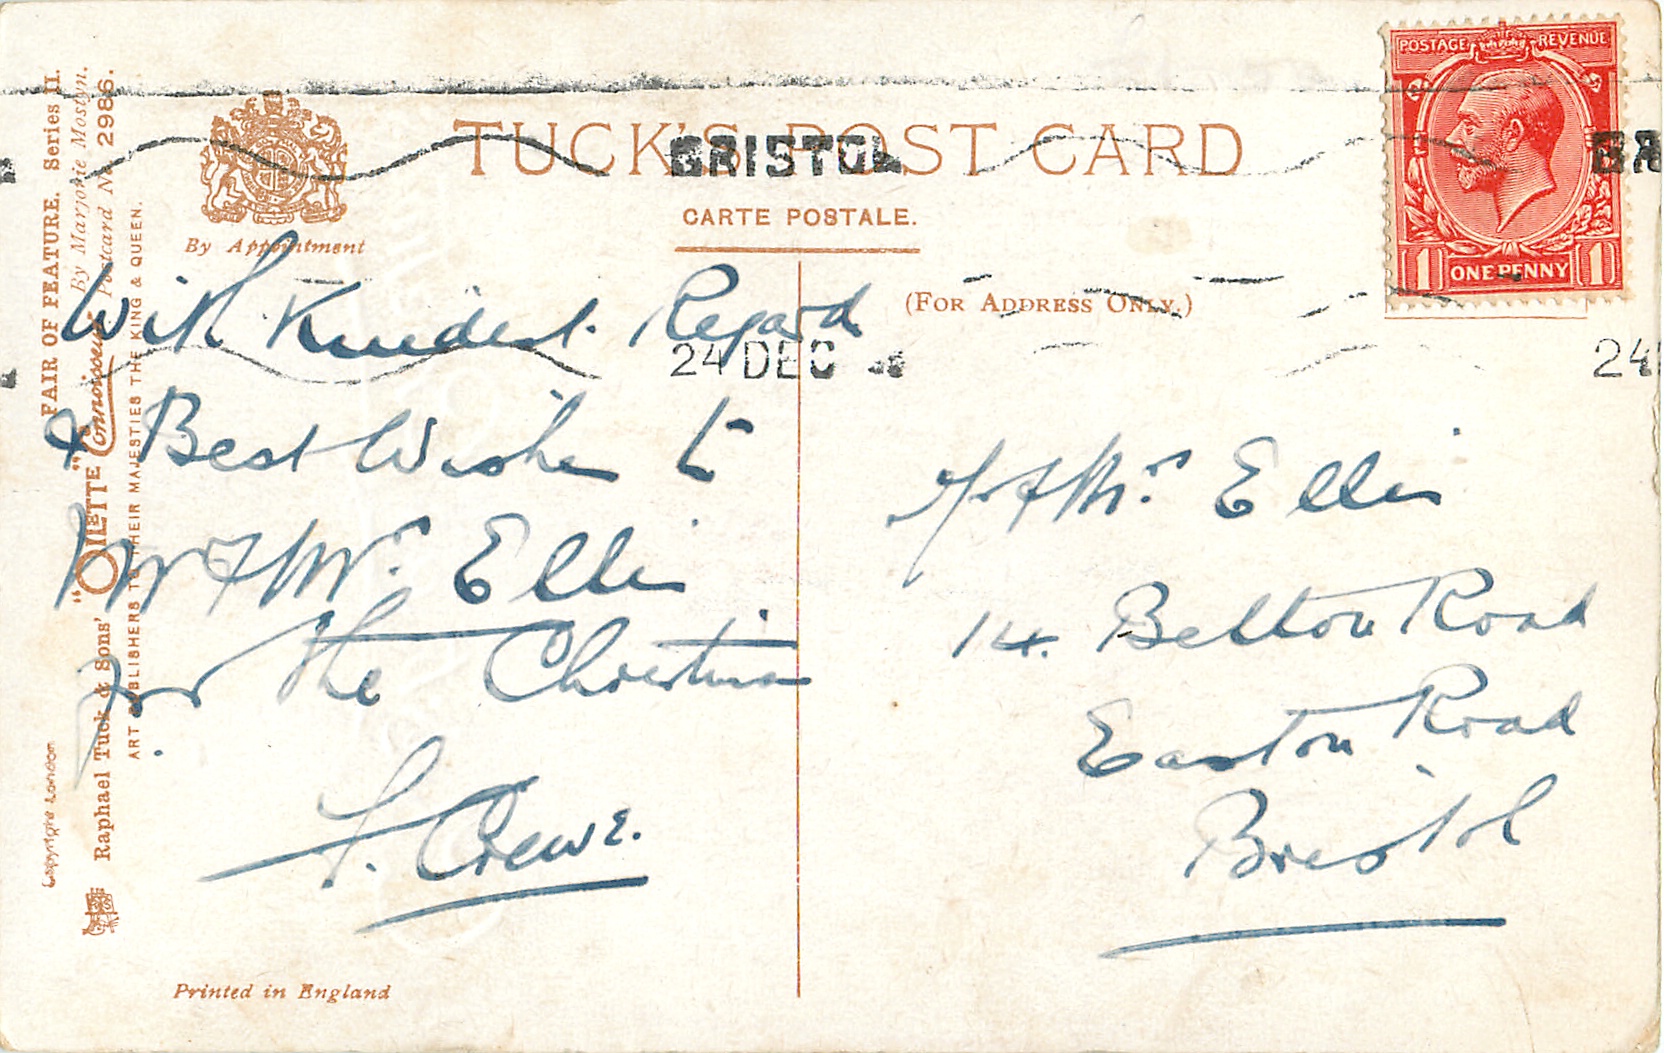 TUCK'S POST CARD
CARTE POSTALE.
(FOR ADDRESS ONLY.)
By Appointment
BRISTOL
24 DEC
BR
24
POSTAGE REVENUE
1 ONE PENNY 1
FAIR OF FEATURE. Series II.
By Marjorie Mostyn.
Raphael Tuck & Sons' "OILETTE" Connoisseur Postcard No. 2986.
ART PUBLISHERS TO THEIR MAJESTIES THE KING & QUEEN.
Copyright London
With Kindest Regard
& Best Wishes to
Mr & Mrs Ellis
for the Christmas
F. Crewe.
Printed in England
Mr & Mrs Ellis
14. Belton Road
Easton Road
Bristol